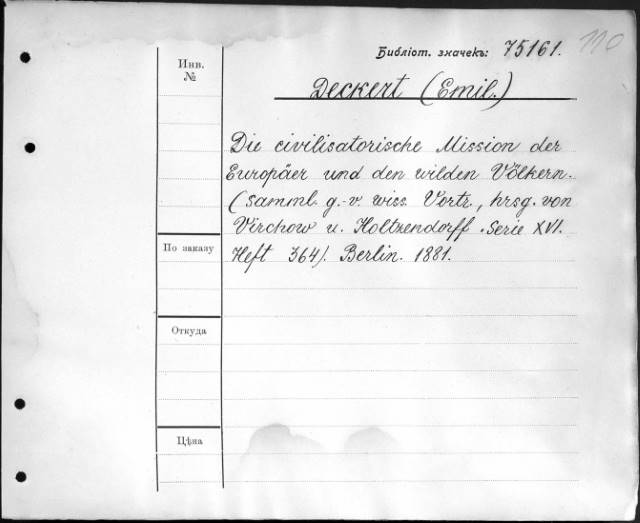 110
Библіот. значекъ: 75161.
Инв.
№
Deckert (Emil.)
Die civilisatorische Mission der
Europäer und den wilden Völkern.
(Samml. g.-v. wiss. Vortr., hrsg. von
Virchow u. Holtzendorff. Serie XVI.
Heft 364). Berlin. 1881.
По заказу
Откуда
Цѣна